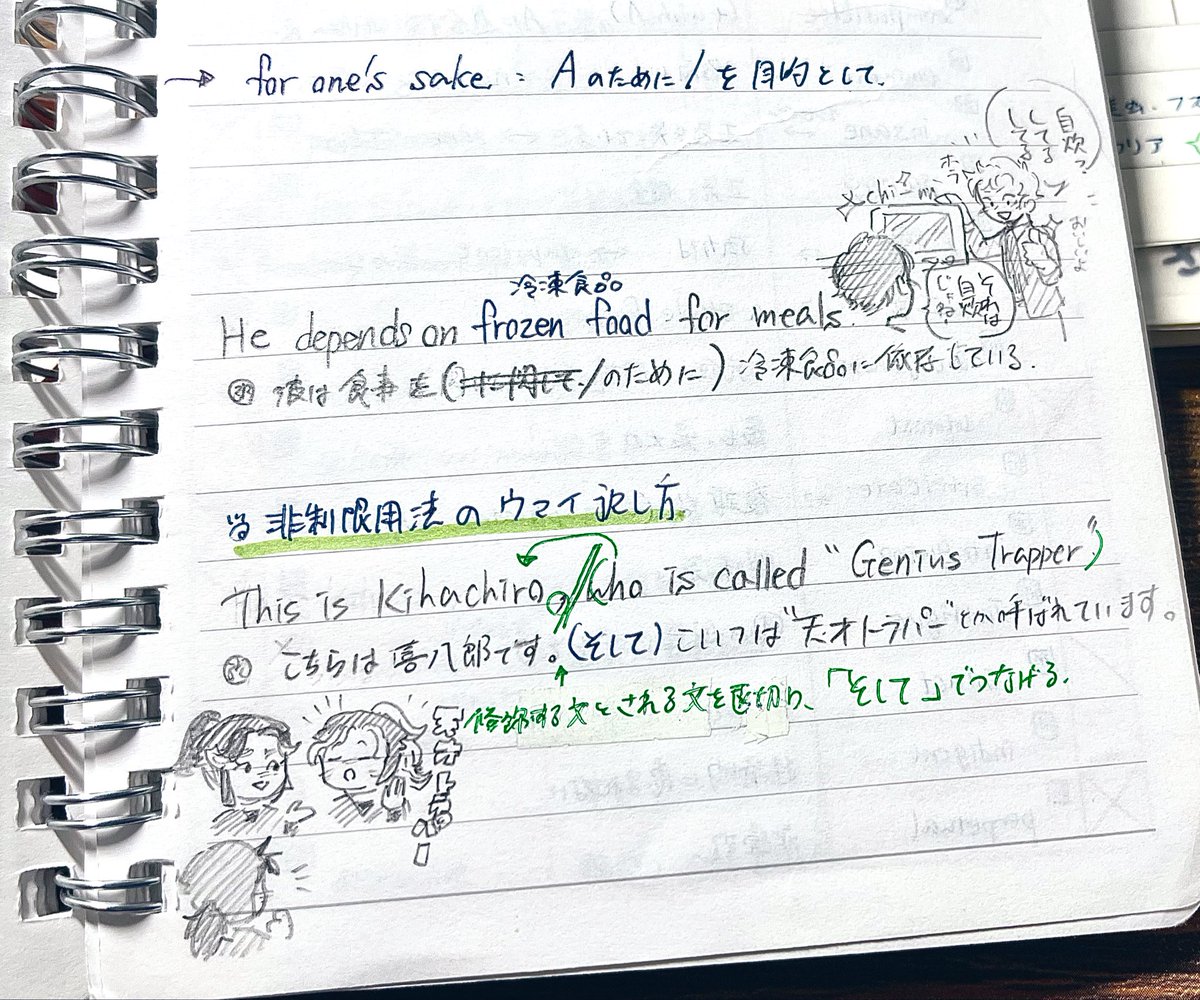 → for one's sake : Aのために/を目的として.
自炊?してるしてる
ホラ
chi~n
おいしいよ
それは自炊じゃねぇ!
冷凍食品
He depends on frozen food for meals.
訳 彼は食事を(に関して/のために)冷凍食品に依存している.
非制限用法のウマイ訳し方
This is Kihachiro, who is called "Genius Trapper"
訳 こちらは喜八郎です。(そして)こいつは"天才トラパー"とか呼ばれています。
修飾する文とされる文を区切り、「そして」でつなげる.
indigent
perpetual